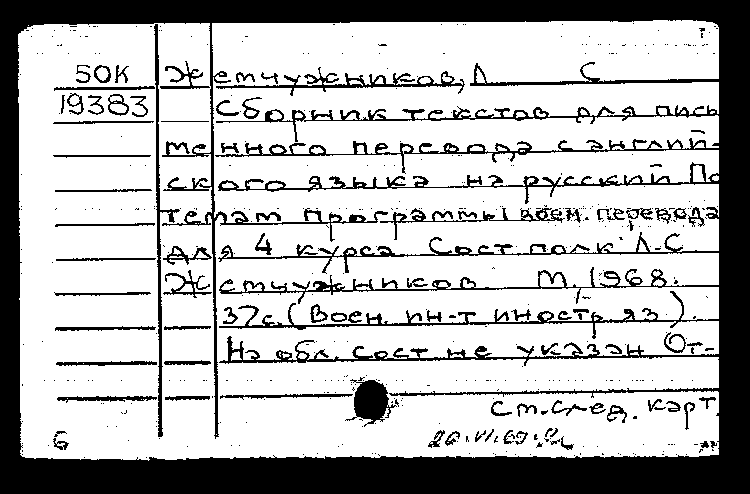 50К Жемчужников, Л С
19383 Сборник текстов для пись
менного перевода с англий-
ского языка на русский По
темам программы воен. перевода
для 4 курса Сост. полк. Л.С
Жемчужников. М., 1968.
37с. (Воен. ин-т иностр яз).
На обл. сост не указан От-
см. след. карт.
6